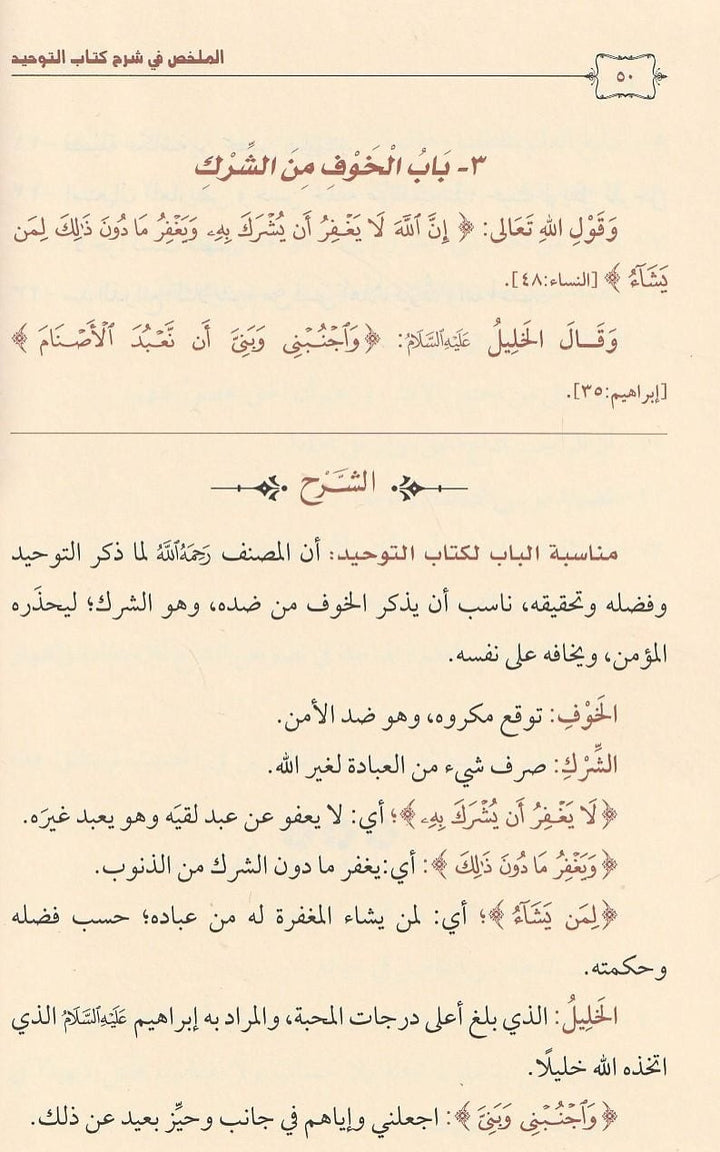 الملخص في شرح كتاب التوحيد
٥٠
٣- بَابُ الْخَوْفِ مِنَ الشِّرْكِ
وَقَوْلِ اللهِ تَعَالى: ﴿ إِنَّ ٱللَّهَ لَا يَغْفِرُ أَن يُشْرَكَ بِهِۦ وَيَغْفِرُ مَا دُونَ ذَٰلِكَ لِمَن
يَشَآءُ ﴾ [النساء:٤٨].
وَقَــالَ الخَلِيلُ عَلَيْهِ السَّلَامُ: ﴿وَٱجْنُبْنِى وَبَنِىَّ أَن نَّعْبُدَ ٱلْأَصْنَامَ ﴾
[إبراهيم:٣٥].
الشَّرْح
مناسبة الباب لكتاب التوحيد: أن المصنف رَحِمَهُ اللَّهُ لما ذكر التوحيد
وفضله وتحقيقه، ناسب أن يذكر الخوف من ضده، وهو الشرك؛ ليحذَره
المؤمن، ويخافه على نفسه.
الخَوْفِ: توقع مكروه، وهو ضد الأمن.
الشِّرْكِ: صرف شيء من العبادة لغير الله.
﴿لَا يَغْفِرُ أَن يُشْرَكَ بِهِۦ﴾؛ أي: لا يعفو عن عبد لقيَه وهو يعبد غيرَه.
﴿وَيَغْفِرُ مَا دُونَ ذَٰلِكَ ﴾: أي:يغفر ما دون الشرك من الذنوب.
﴿لِمَن يَشَآءُ ﴾؛ أي: لمن يشاء المغفرة له من عباده؛ حسب فضله
وحكمته.
الخَلِيلُ: الذي بلغ أعلى درجات المحبة، والمراد به إبراهيم عَلَيْهِ السَّلَامُ الذي
اتخذه الله خليلًا.
﴿وَٱجْنُبْنِى وَبَنِىَّ ﴾: اجعلني وإياهم في جانب وحيِّز بعيد عن ذلك.